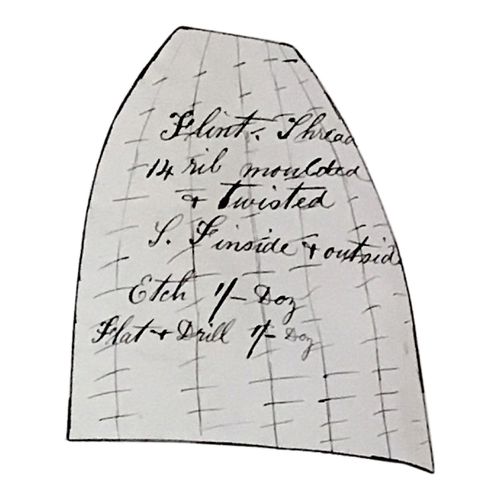 Flint & Thread
14 rib moulded
& Twisted
S. F inside & outside
Etch 1/- Doz
Flat & Drill 1/- Doz